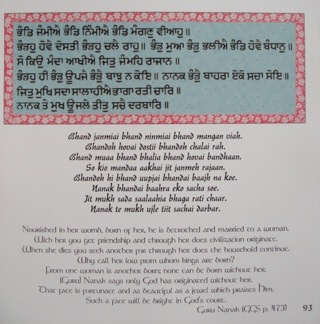 ਭੰਡਿ ਜੰਮੀਐ ਭੰਡਿ ਨਿੰਮੀਐ ਭੰਡਿ ਮੰਗਣੁ ਵੀਆਹੁ॥
ਭੰਡਹੁ ਹੋਵੈ ਦੋਸਤੀ ਭੰਡਹੁ ਚਲੈ ਰਾਹੁ॥ ਭੰਡੁ ਮੁਆ ਭੰਡੁ ਭਾਲੀਐ ਭੰਡਿ ਹੋਵੈ ਬੰਧਾਨੁ॥
ਸੋ ਕਿਉ ਮੰਦਾ ਆਖੀਐ ਜਿਤੁ ਜੰਮਹਿ ਰਾਜਾਨ॥
ਭੰਡਹੁ ਹੀ ਭੰਡੁ ਊਪਜੈ ਭੰਡੈ ਬਾਝੁ ਨ ਕੋਇ॥ ਨਾਨਕ ਭੰਡੈ ਬਾਹਰਾ ਏਕੋ ਸਚਾ ਸੋਇ॥
ਜਿਤੁ ਮੁਖਿ ਸਦਾ ਸਾਲਾਹੀਐ ਭਾਗਾ ਰਤੀ ਚਾਰਿ॥
ਨਾਨਕ ਤੇ ਮੁਖ ਊਜਲੇ ਤਿਤੁ ਸਚੈ ਦਰਬਾਰਿ॥
Bhand janmiai bhand ninmiai bhand mangan viah.
Bhandoh hovai dostii bhandoh chalai rah.
Bhand muaa bhand bhalia bhand hovai bandhaan.
So kio mandaa aakhai jit janmeh rajaan.
Bhandoh hi bhand uupjai bhandai baajh na koe.
Nanak bhandai baahra eko sacha soe.
Jit mukh sada saalaahia bhaga rati chaar.
Nanak te mukh ujle tiit sachai darbar.
Nourished in her womb, born of her, is he betrothed and married to a woman.
With her you get friendship and through her does civilization originate.
When she dies you seek another for through her does the household continue.
Why call her low from whom kings are born?
From one woman is another born; none can be born without her.
(Guru) Nanak says only God has originated without her.
That face is fortunate and as beautiful as a jewel which praises Him.
Such a face will be bright in God's court.
Guru Nanak (GGS p. 473)
93